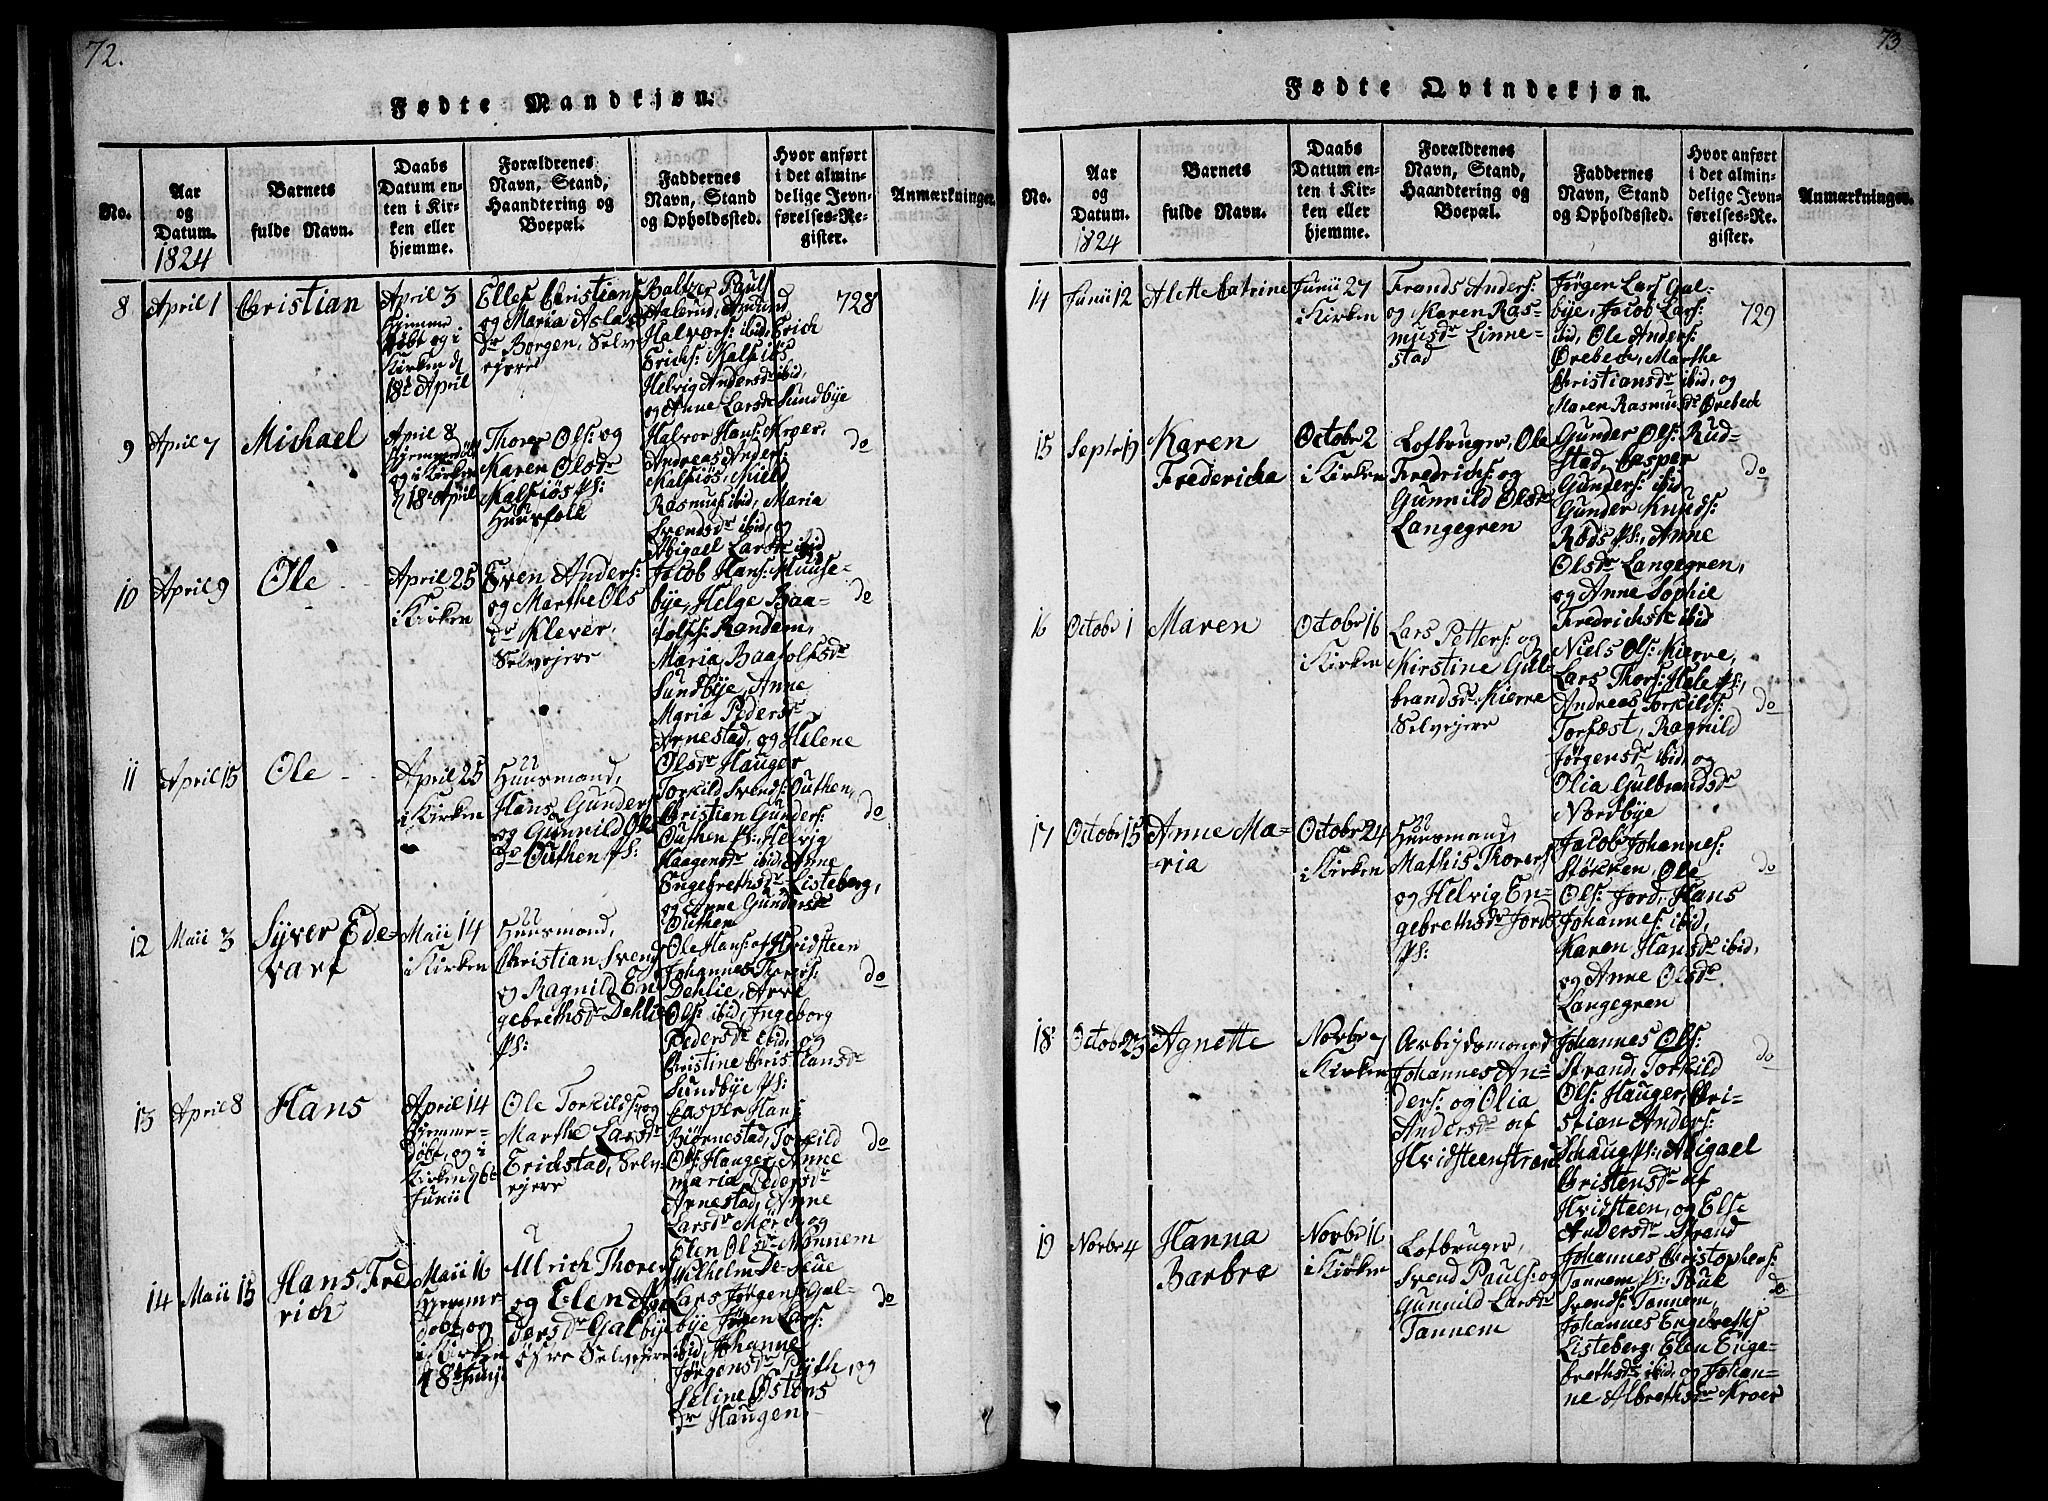 72.
Fødte Mandkjøn.
No.
Aar
og
Datum.
1824
Barnets
fulde Navn.
Daabs
Datum en-
ten i Kir-
ken eller
hjemme.
Forældrenes
Navn, Stand,
Haandtering og
Boepæl.
Faddernes
Navn, Stand
og Opholdssted.
Hvor anført
i det almin-
delige Jevn-
førelses-Re-
gister.
Anmærkninger.
8
April 1
Christian
April 3
Hjemme-
døbt og i
Kirken d
18d April
Ellef Christians
og Maria Aslas
Dr Borgen, Selv-
ejere
Baltzer Pauls
Aslerud, Amund
Halvors: ibid, Erich
Erichs: Kalsiøs
Helvig Andersdr ibid,
og Anne Larsdr Sundbye
728
9
April 7
Michael
April 8
Hjemmedøbt
og i Kirken
d 18d April
Thorer Ols: og
Karen Olsdr
Kalsiøs Ps:
Huusfolk
Halvor Hans: Kroer,
Andreas Anders:
Kalsiøs, Niels
Rasmus: ibid, Maria
Svendsdr ibid, og
Abigael Larsdr ibid
do
10
April 9
Ole
April 25
i Kirken
Sven Anders:
og Marthe Ols
Dr Klever,
Selvejere
Jacob Hans: Kuuse-
bye, Helge Baa-
tolfs: Randem,
Maria Baatolfsdr
Sundbye, Anne
Maria Pedersdr
Arnestad, og Helene
Olsdr Hauger
do
11
April 15
Ole
April 25
i Kirken
Huusmand,
Hans Gunders
og Gunnild Ols
Dr Outhen Ps:
Torkild Svends: Outhen,
Christian Gunders:
Outhen Ps: Helvig
Haagensdr ibid, Anne
Engebrethsdr Listeberg,
og Anne Gundersdr
Outhen
do
12
Maii 3
Syver Ede-
vart
Maii 14
i Kirken
Huusmand,
Christian Svends
og Ragnild En
gebrethsdr Dehlie
Ps:
Ole Hans: af Hvidsteen
Johannes Thorers:
Dehlie, Arve
Ols: ibid, Ingeborg
Pedersdr ibid, og
Christine Christiansdr
Sundbye Ps:
do
13
April 8
Hans
April 14
Hjemme-
døbt, og i
Kirken d 6te
Junii
Ole Torkilds: og
Marthe Larsdr
Erichstad, Selv-
ejere
Casper Hans:
Biørnestad, Torkild
Ols: Hauger, Anne
maria Pedersdr
Arnestad, Anne
Larsdr Mørch og
Elen Olsdr Monnem
do
14
Maii 15
Hans, Fred
rich
Maii 16
Hjemme-
døbt, og
i Kirken
d 8de Junii
Ulrich Thorers
og Elen An
dersdr Galbye
østre Selvejere
Wilhelm De-Seue
Lars Jørgens: Gal-
bye Jørgen Lars:
ibid, Johanne
Jørgensdr Pytte, og
Seline Østens
Dr Haugen,
do
73
Fødte Qvindekjøn.
No.
Aar
og
Datum.
1824
Barnets
fulde Navn.
Daabs
Datum en-
ten i Kir-
ken eller
hjemme.
Forældrenes
Navn, Stand,
Haandtering og
Boepæl.
Faddernes
Navn, Stand
og Opholdssted.
Hvor anført
i det almin-
delige Jevn-
førelses-Re-
gister.
Anmærkninger.
14
Junii 12
Alette Catrine
Junii 27
i Kirken
Frands Anders:
og Karen Ras-
musdr Linne-
stad
Jørgen Lars: Gal-
bye, Jacob Lars:
ibid, Ole Anders:
Ørebeck, Marthe
Christiansdr ibid, og
Maren Rasmusdr Ørebeck
729
15
Septbr 19
Karen
Fredericha
Octobr 2
i Kirken
Lofbruger, Ole
Fredrichs: og
Gunnild Olsdr
Langegren
Gunder Ols: Rud-
stad, Casper
Gunders: ibid
Gunder Knuds:
Røds Ps:, Anne
Olsdr Langegren,
og Anne Sophie
Fredrichsdr ibid
do
16
Octobr 1
Maren
Octobr 16
i Kirken
Lars Petters: og
Kirstine Gul-
brandsdr Kierre
Selvejere
Niels Ols: Kierre,
Lars Thors: Hele Ps:,
Andreas Torkilds:
Torfæst, Ragnild
Jørgensdr ibid, og
Olia Gulbrandsdr
Nordbye
do
17
Octobr 15
Anne Ma-
-ria
Octobr 24
i Kirken
Huusmand,
Mathis Thorers
og Helvig En-
gebrethsdr Jord
Ps:
Jacob Johannes:
Støkken, Ole
Ols: Jord, Hans
Johannes: ibid,
Karen Hansdr ibid,
og Anne Olsdr
Langegren
do
18
Octobr 23
Agnette
Novbr 7
i Kirken
Arbejdsmand
Johannes An-
ders: og Olia
Andersdr af
Hvidsteenstrand
Johannes Ols:
Strand, Torkild
Ols: Hauger, Chri-
stian Anders:
Schaug Ps:, Abigael
Christensdr af
Hvidsteen, og Else
Andersdr Strand
do
19
Novbr 4
Hanna
Barbra
Novbr 16
i Kirken
Lofbruger,
Svend Pauls: og
Gunnild Larsdr
Tannem
Johannes Christophers:
Tannem Ps:, Poul
Svends: Tannem,
Johannes Engebreths
Listeberg, Elen Enge-
brethsdr ibid, og Johan-
ne Albrethsdr Kroer
do